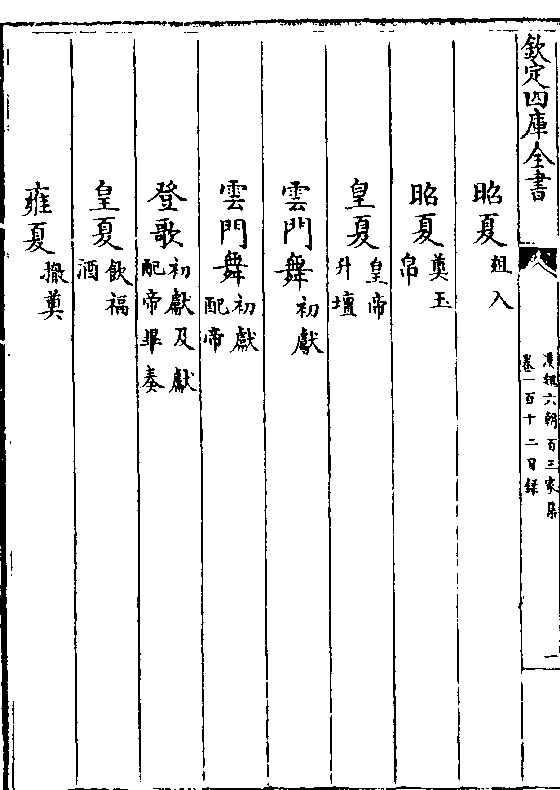 欽定四庫全書
漢魏六朝百三家集
卷一百十二目錄
一
昭夏俎入
昭夏奠玉帛
皇夏皇帝升壇
雲門舞初獻
雲門舞初獻配帝
登歌初獻及獻配帝畢奏
皇夏飲福酒
雍夏撤奠